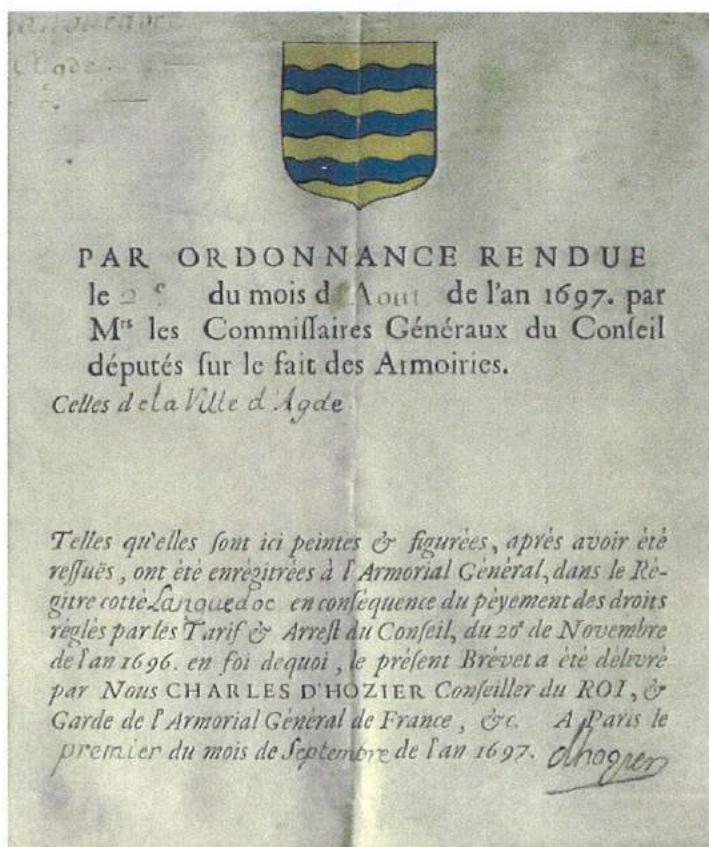 Languedoc
Agde.
PAR ORDONNANCE RENDUE
le 2ᵉ du mois d'Aout de l'an 1697. par
Mʳˢ les Commiſſaires Généraux du Conſeil
députés ſur le fait des Armoiries.
Celles de la Ville d'Agde.
Telles qu'elles ſont ici peintes & figurées, après avoir été
reſſuës, ont été enrégitrées à l'Armorial Général, dans le Ré-
gitre cotté Languedoc en conſéquence du péyement des droits
réglés par les Tarif & Arreſt du Conſeil, du 20ᵉ de Novembre
de l'an 1696. en foi dequoi, le préſent Brévet a été délivré
par Nous CHARLES D'HOZIER Conſeiller du ROI, &
Garde de l'Armorial Général de France, &c. A Paris le
premier du mois de Septembre de l'an 1697.